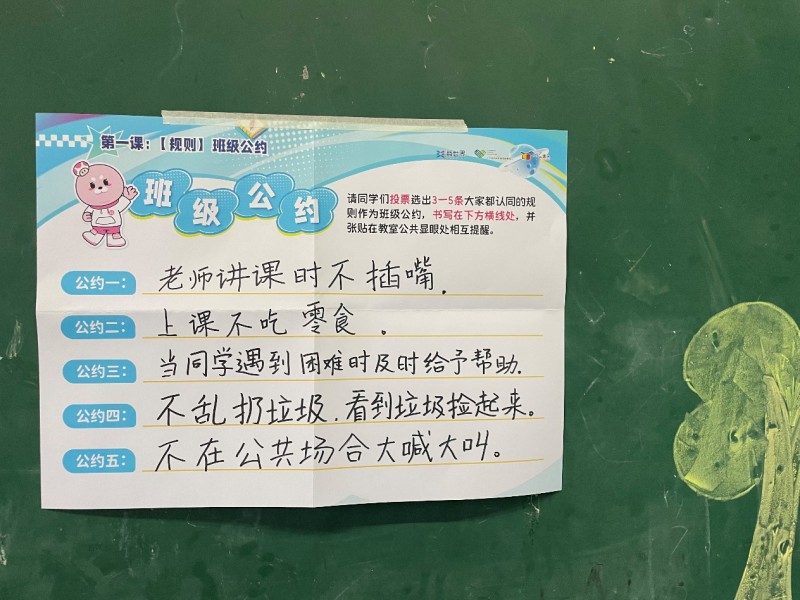 第一课：【规则】班级公约
班级公约
请同学们投票选出3—5条大家都认同的规
则作为班级公约，书写在下方横线处，并
张贴在教室公共显眼处相互提醒。
公约一：老师讲课时不插嘴.
公约二：上课不吃零食.
公约三：当同学遇到困难时及时给予帮助.
公约四：不乱扔垃圾.看到垃圾捡起来。
公约五：不在公共场合大喊大叫。